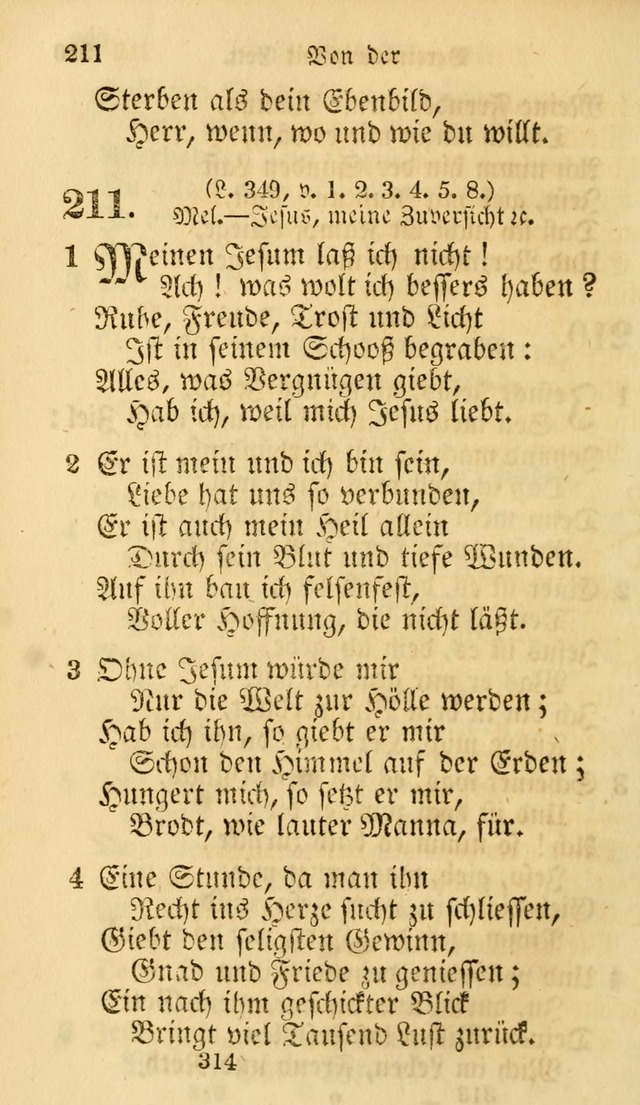 211 Von der
Sterben als dein Ebenbild,
Herr, wenn, wo und wie du willt.
211. (L. 349, v. 1. 2. 3. 4. 5. 8.)
Mel.—Jesus, meine Zuversicht ꝛc.
1 Meinen Jesum laß ich nicht!
Ach! was wolt ich bessers haben?
Ruhe, Freude, Trost und Licht
Ist in seinem Schooß begraben:
Alles, was Vergnügen giebt,
Hab ich, weil mich Jesus liebt.
2 Er ist mein und ich bin sein,
Liebe hat uns so verbunden,
Er ist auch mein Heil allein
Durch sein Blut und tiefe Wunden.
Auf ihn bau ich felsenfest,
Voller Hoffnung, die nicht läßt.
3 Ohne Jesum würde mir
Nur die Welt zur Hölle werden;
Hab ich ihn, so giebt er mir
Schon den Himmel auf der Erden;
Hungert mich, so setzt er mir,
Brodt, wie lauter Manna, für.
4 Eine Stunde, da man ihn
Recht ins Herze sucht zu schliessen,
Giebt den seligsten Gewinn,
Gnad und Friede zu geniessen;
Ein nach ihm geschickter Blick
Bringt viel Tausend Lust zurück.
314